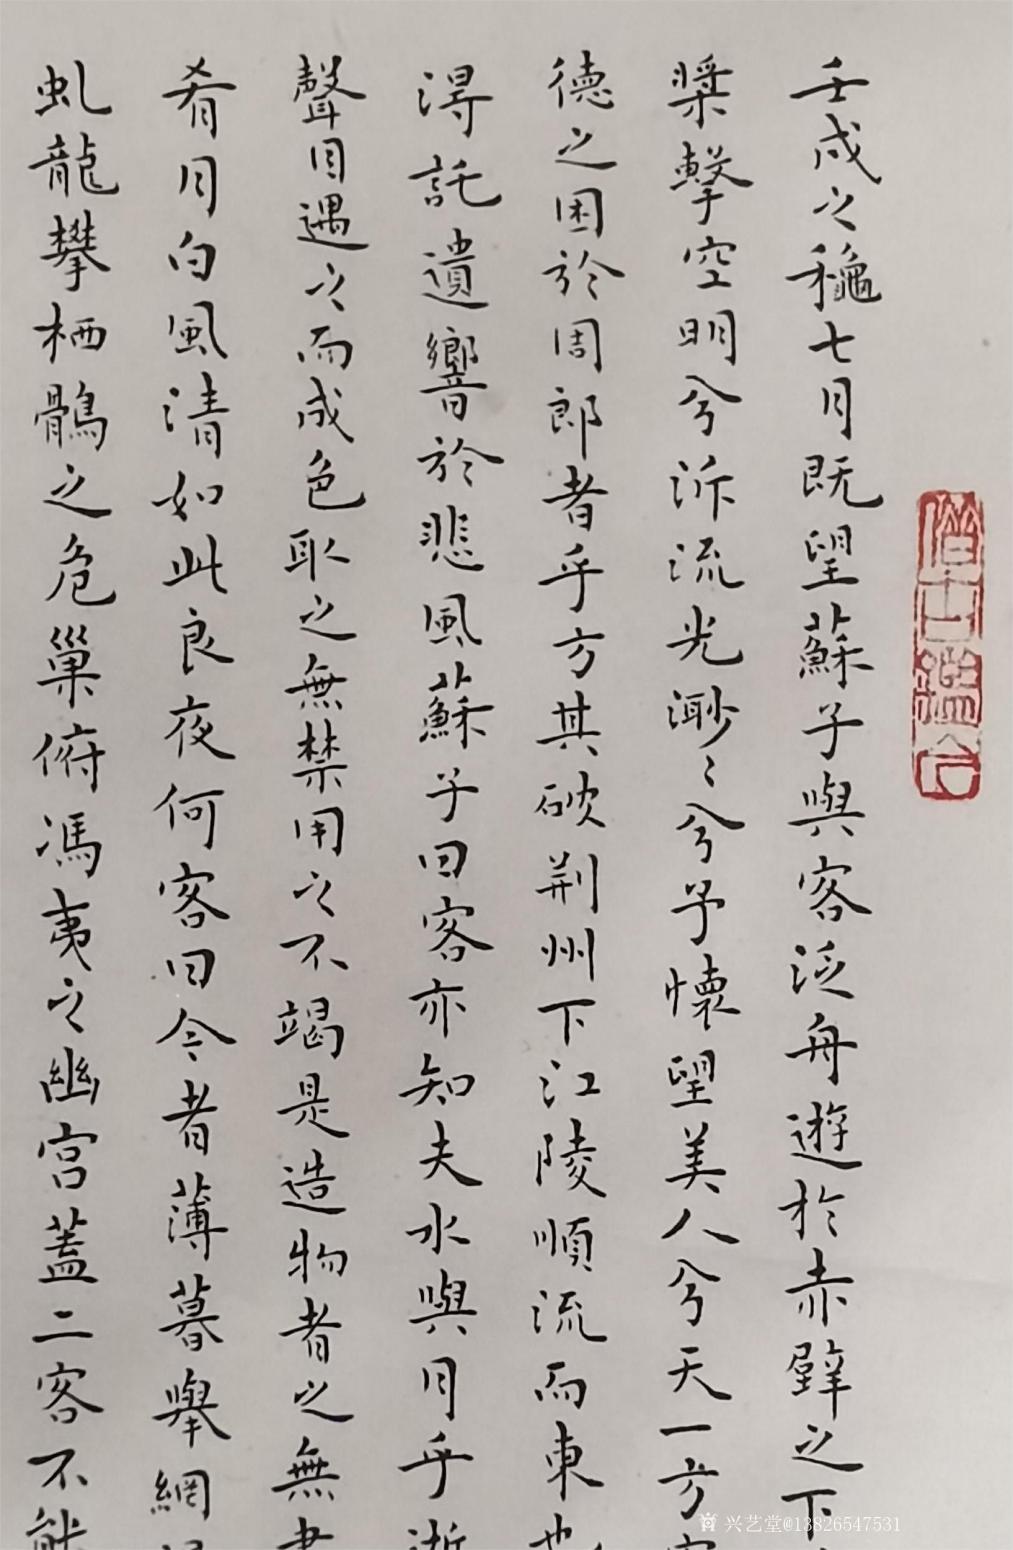 壬戌之龝七月既望蘇子與客泛舟遊於赤壁之下
槳擊空明兮泝流光渺〻兮予懷望美人兮天一方
德之困於周郎者乎方其破荆州下江陵順流而東也
得託遺響於悲風蘇子曰客亦知夫水與月乎逝
聲目遇之而成色取之無禁用之不竭是造物者之無
肴月白風清如此良夜何客曰今者薄暮舉網
虬龍攀栖鶻之危巢俯馮夷之幽宮蓋二客不能
兴艺堂@13826547531